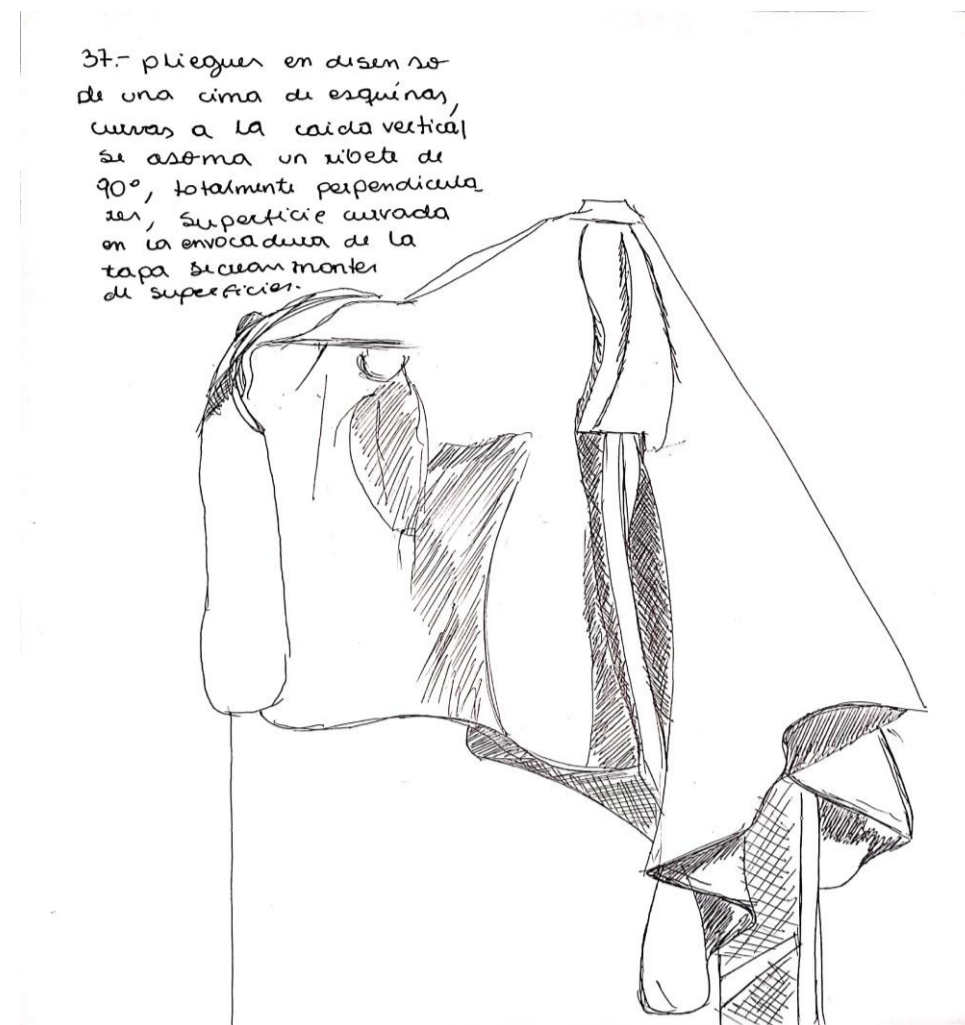 37.- pliegues en disenso
de una cima de esquinas,
curvas a la caida vertical
se asoma un ribete de
90°, totalmente perpendicula
res, superficie curvada
en la envocadura de la
tapa se crean montes
de superficies.